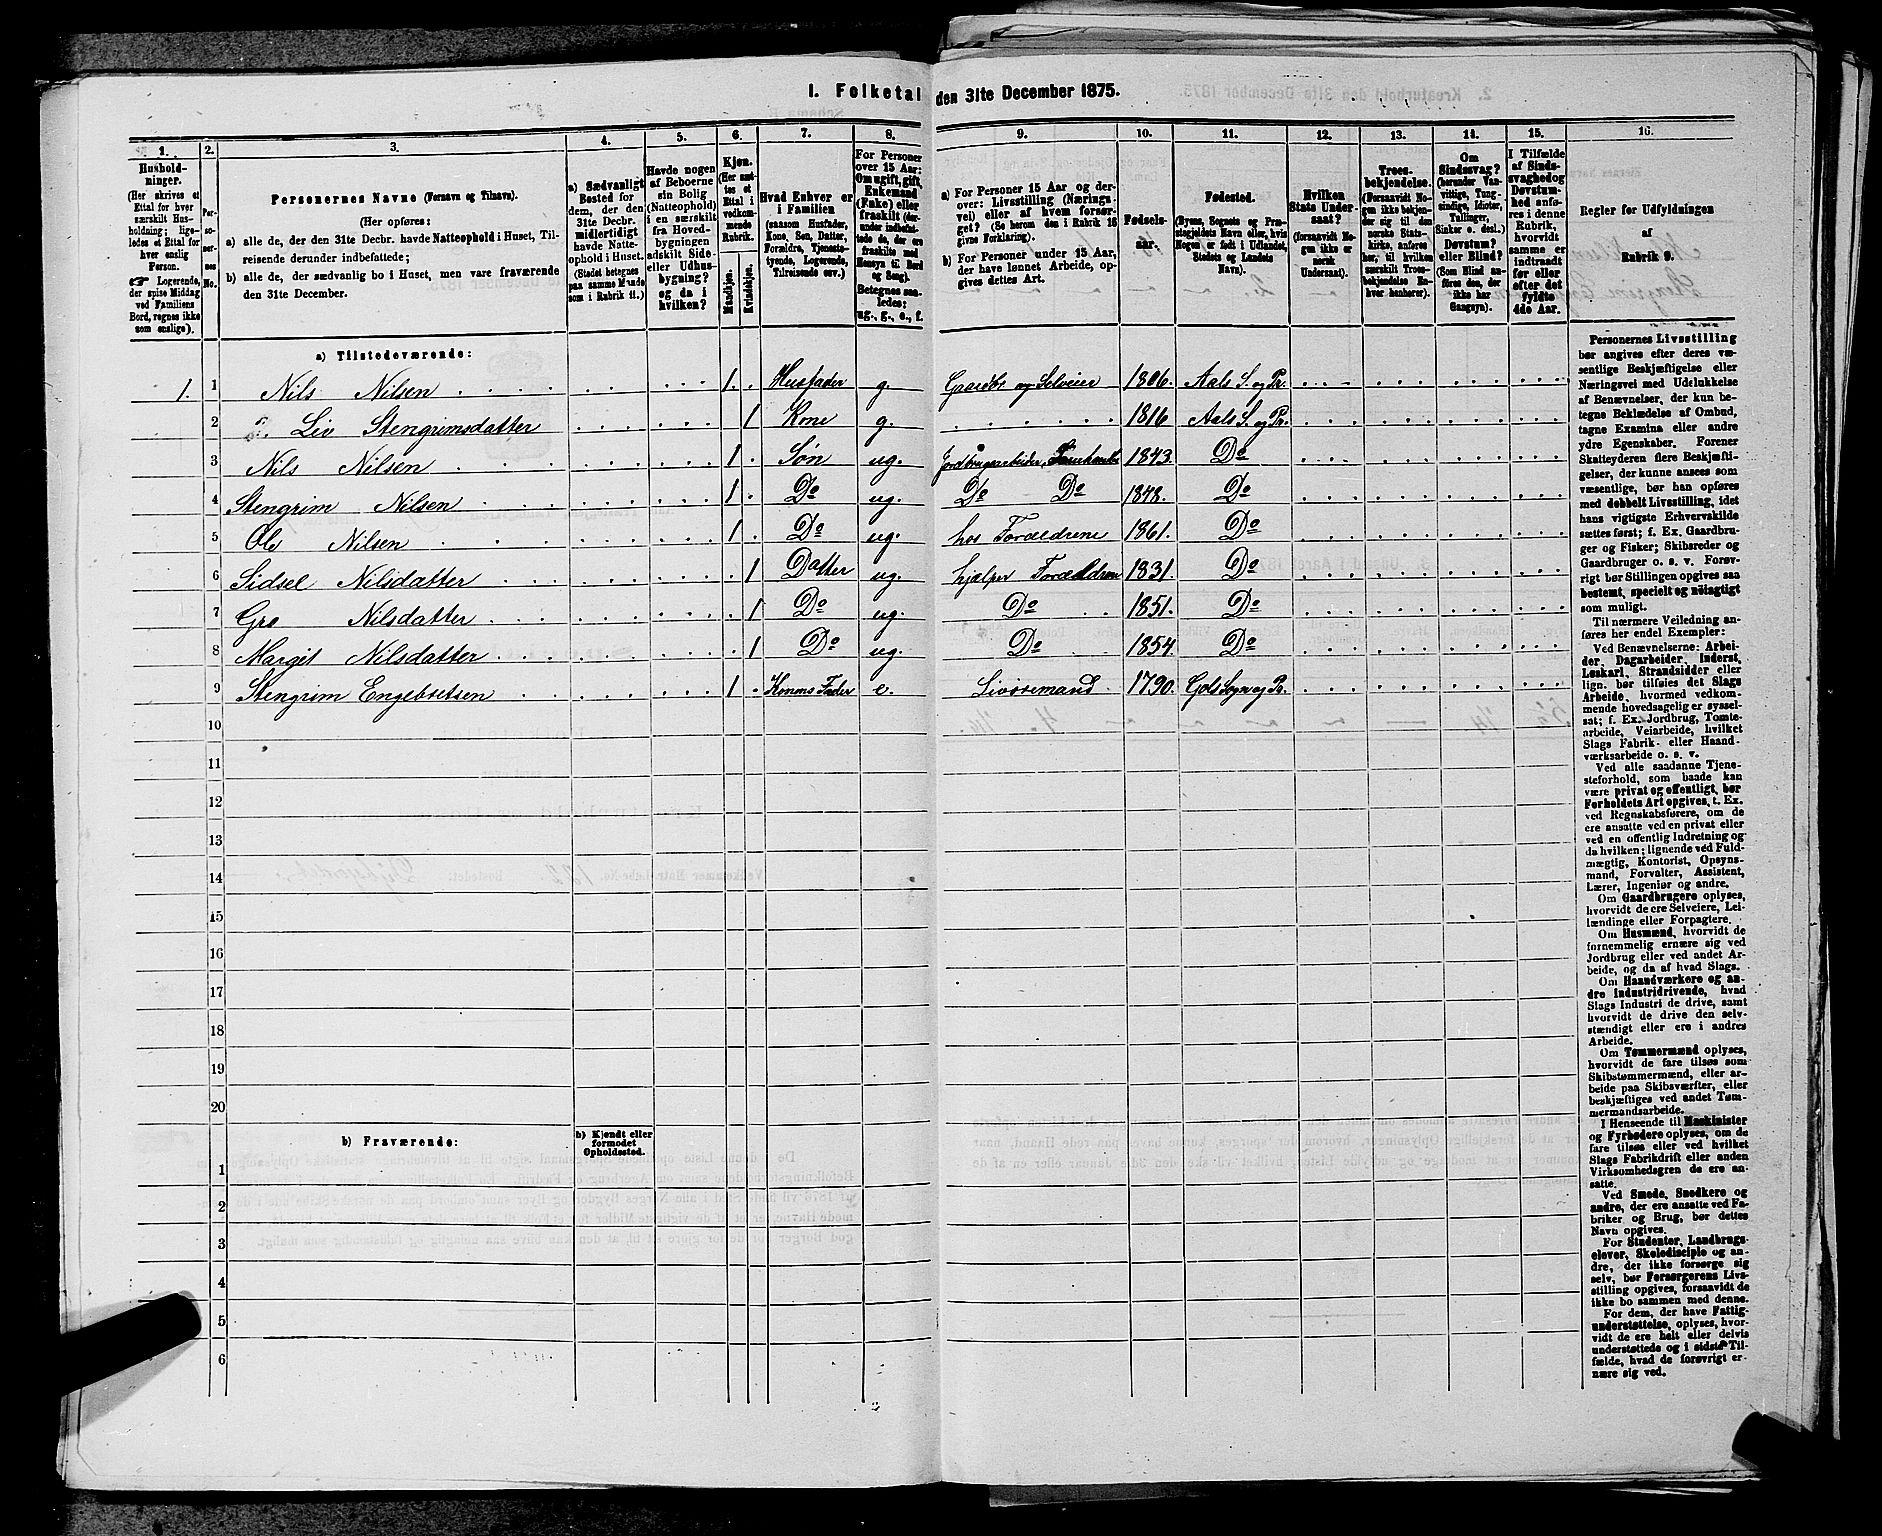 1. Folketal den 31te December 1875.
1. 2. 3. 4. 5. 6. 7. 8. 9. 10. 11. 12. 13. 14. 15. 16.
Husholdninger.
(Her skrives et
Ettal for hver
særskilt Husholdning;
ligeledes et Ettal for
hver enslig
Person.
☞ Logerende,
der spise Middag
ved Familiens
Bord, regnes ikke
som enslige).
Personernes No.
Personernes Navne (Fornavn og Tilnavn).
(Her opføres:
a) alle de, der den 31te Decbr. havde Natteophold i Huset, Tilreisende derunder indbefattede;
b) alle de, der sædvanlig bo i Huset, men vare fraværende
den 31te December.
a) Sædvanligt
Bosted for
dem, der den
31te Decbr.
midlertidigt
havde Natteophold i Huset.
(Stedet betegnes
paa samme Maade
som i Rubrik 11.)
Havde nogen
af Beboerne
sin Bolig
(Natteophold)
i en særskilt
fra Hovedbygningen
adskilt Side-
eller Udhusbygning?
og da i
hvilken?
Kjøn.
(Her sættes et
Ettal i
vedkommende
Rubrik.
Mandkjøn.
Kvindekjøn.
Hvad Enhver er
i Familien
(saasom Husfader,
Kone, Søn, Datter,
Forældre, Tjenestetyende, Logerende,
Tilreisende osv.)
For Personer
over 15 Aar:
Om ugift, gift,
Enkemand
(Enke) eller
fraskilt (derunder indbefattede de, der ere
fraskilte med
Hensyn til Bord
og Seng).
Betegnes saaledes:
ug., g., e., f.
a) For Personer 15 Aar og derover: Livsstilling (Næringsvei) eller af hvem forsørget? (Se herom den i Rubrik 16
givne Forklaring).
b) For Personer under 15 Aar,
der have lønnet Arbeide, opgives dettes Art.
Fødselsaar.
Fødested.
(Byens, Sognets og Præstegjeldets Navn eller, hvis
Nogen er født i Udlandet,
Stedets og Landets
Navn).
Hvilken
Stats Undersaat?
(forsaavidt Nogen ikke er
norsk
Undersaat).
Troesbekjendelse.
(Forsaavidt Nogen ikke bekjender sig til den
norske Statskirke, anføres
her, til hvilken
særskilt Troesbekjendelse Enhver henhører).
Om
Sindssvag?
(herunder Vanvittige, Tungsindige, Idioter,
Tullinger,
Sinker o. desl.)
Døvstum?
eller Blind?
(Som Blind anføres den, der
ikke har
Gangsyn).
I Tilfælde
af Sindssvaghed og
Døvstumhed anføres i denne
Rubrik,
hvorvidt
samme er
indtraadt
før eller
efter det
fyldte
4de Aar.
Regler for Udfyldningen
af
Rubrik 9.
a) Tilstedeværende:
1. 1 Nils Nilsen 1. Husfader g. Gaardbr og Selveier 1806. Aals S. og Pr.
2 Liv Stengrimsdatter 1 Kone g. 1816 Aals S. og Pr.
3 Nils Nilsen 1 Søn ug. Jordbrugsarbeider, 1843. Do
4 Stengrim Nilsen 1 Do ug. Do Do 1848. Do
5 Ole Nilsen 1 Do ug. hos Forældrene 1861. Do
6 Sidsel Nilsdatter 1 Datter ug. hjælper Forældren 1831. Do
7 Gro Nilsdatter 1 Do ug. Do 1851. Do
8 Margit Nilsdatter 1 Do ug. Do 1854. Do
9 Stengrim Engebretsen 1 Konens Fader e. Livøremand 1790. Gols Sogn og Pr.
10
11
12
13
14
15
16
17
18
19
20
b) Fraværende:
b) Kjendt eller
formodet
Opholdssted.
1
2
3
4
5
6
Personernes Livsstilling
bør angives efter deres væsentlige Beskjæftigelse eller
Næringsvei med Udelukkelse
af Benævnelser, der kun betegne Beklædelse af Ombud,
tagne Examina eller andre
ydre Egenskaber. Forener
Skatteyderen flere Beskjæftigelser, der kunne ansees som
væsentlige, bør han opføres
med dobbelt Livsstilling, idet
hans vigtigste Erhvervskilde
sættes først; f. Ex. Gaardbruger og Fisker; Skibsreder og
Gaardbruger o. s. v. Forøvrigt bør Stillingen opgives saa
bestemt, specielt og nøiagtigt
som muligt.
Til nærmere Veiledning anføres her endel Exempler:
Ved Benævnelserne: Arbeider, Dagarbeider, Inderst,
Løskarl, Strandsidder eller
lign. bør tilføies det Slags
Arbeide, hvormed vedkommende hovedsagelig er sysselsat; f. Ex. Jordbrug, Tomtearbeide, Veiarbeide, hvilket
Slags Fabrik- eller Haandværksarbeide o. s. v.
Ved alle saadanne Tjenesteforhold, som baade kan
være privat og offentligt, bør
Forholdets Art opgives, t. Ex.
ved Regnskabsførere, om de
ere ansatte ved en privat eller
ved en offentlig Indretning og
da hvilken; lignende ved Fuldmægtig, Kontorist, Opsynsmand, Forvalter, Assistent,
Lærer, Ingeniør og andre.
Om Gaardbrugere oplyses,
hvorvidt de ere Selveiere, Leilændinge eller Forpagtere.
Om Husmænd, hvorvidt de
fornemmelig ernære sig ved
Jordbrug eller ved andet Arbeide, og da af hvad Slags.
Om Haandværkere og andre industridrivende, hvad
Slags Industri de drive, samt
hvorvidt de drive den selvstændigt eller ere i andres
Arbeide.
Om Tømmermænd oplyses,
hvorvidt de fare tilsøs som
Skibstømmermænd, eller arbeide paa Skibsværfter, eller
beskjæftiges ved andet Tømmermandsarbeide.
I Henseende til Maskinister
og Fyrbødere oplyses, om de
fare tilsøs eller ved hvilket
Slags Fabrikdrift eller anden
Virksomhedsgren de ere ansatte.
Ved Smede, Snedkere og
andre, der ere ansatte ved Fabriker og Brug, bør dettes
Navn opgives.
For Studenter, Landbrugselever, Skoledisciple og andre, der ikke forsørge sig
selv, bør Forsørgerens Livsstilling opgives, forsaavidt de
ikke bo sammen med denne.
For dem, der have Fattigunderstøttelse, oplyses, hvorvidt de ere helt eller delvis
understøttede og i sidste Tilfælde, hvad de forøvrigt ernære sig ved.